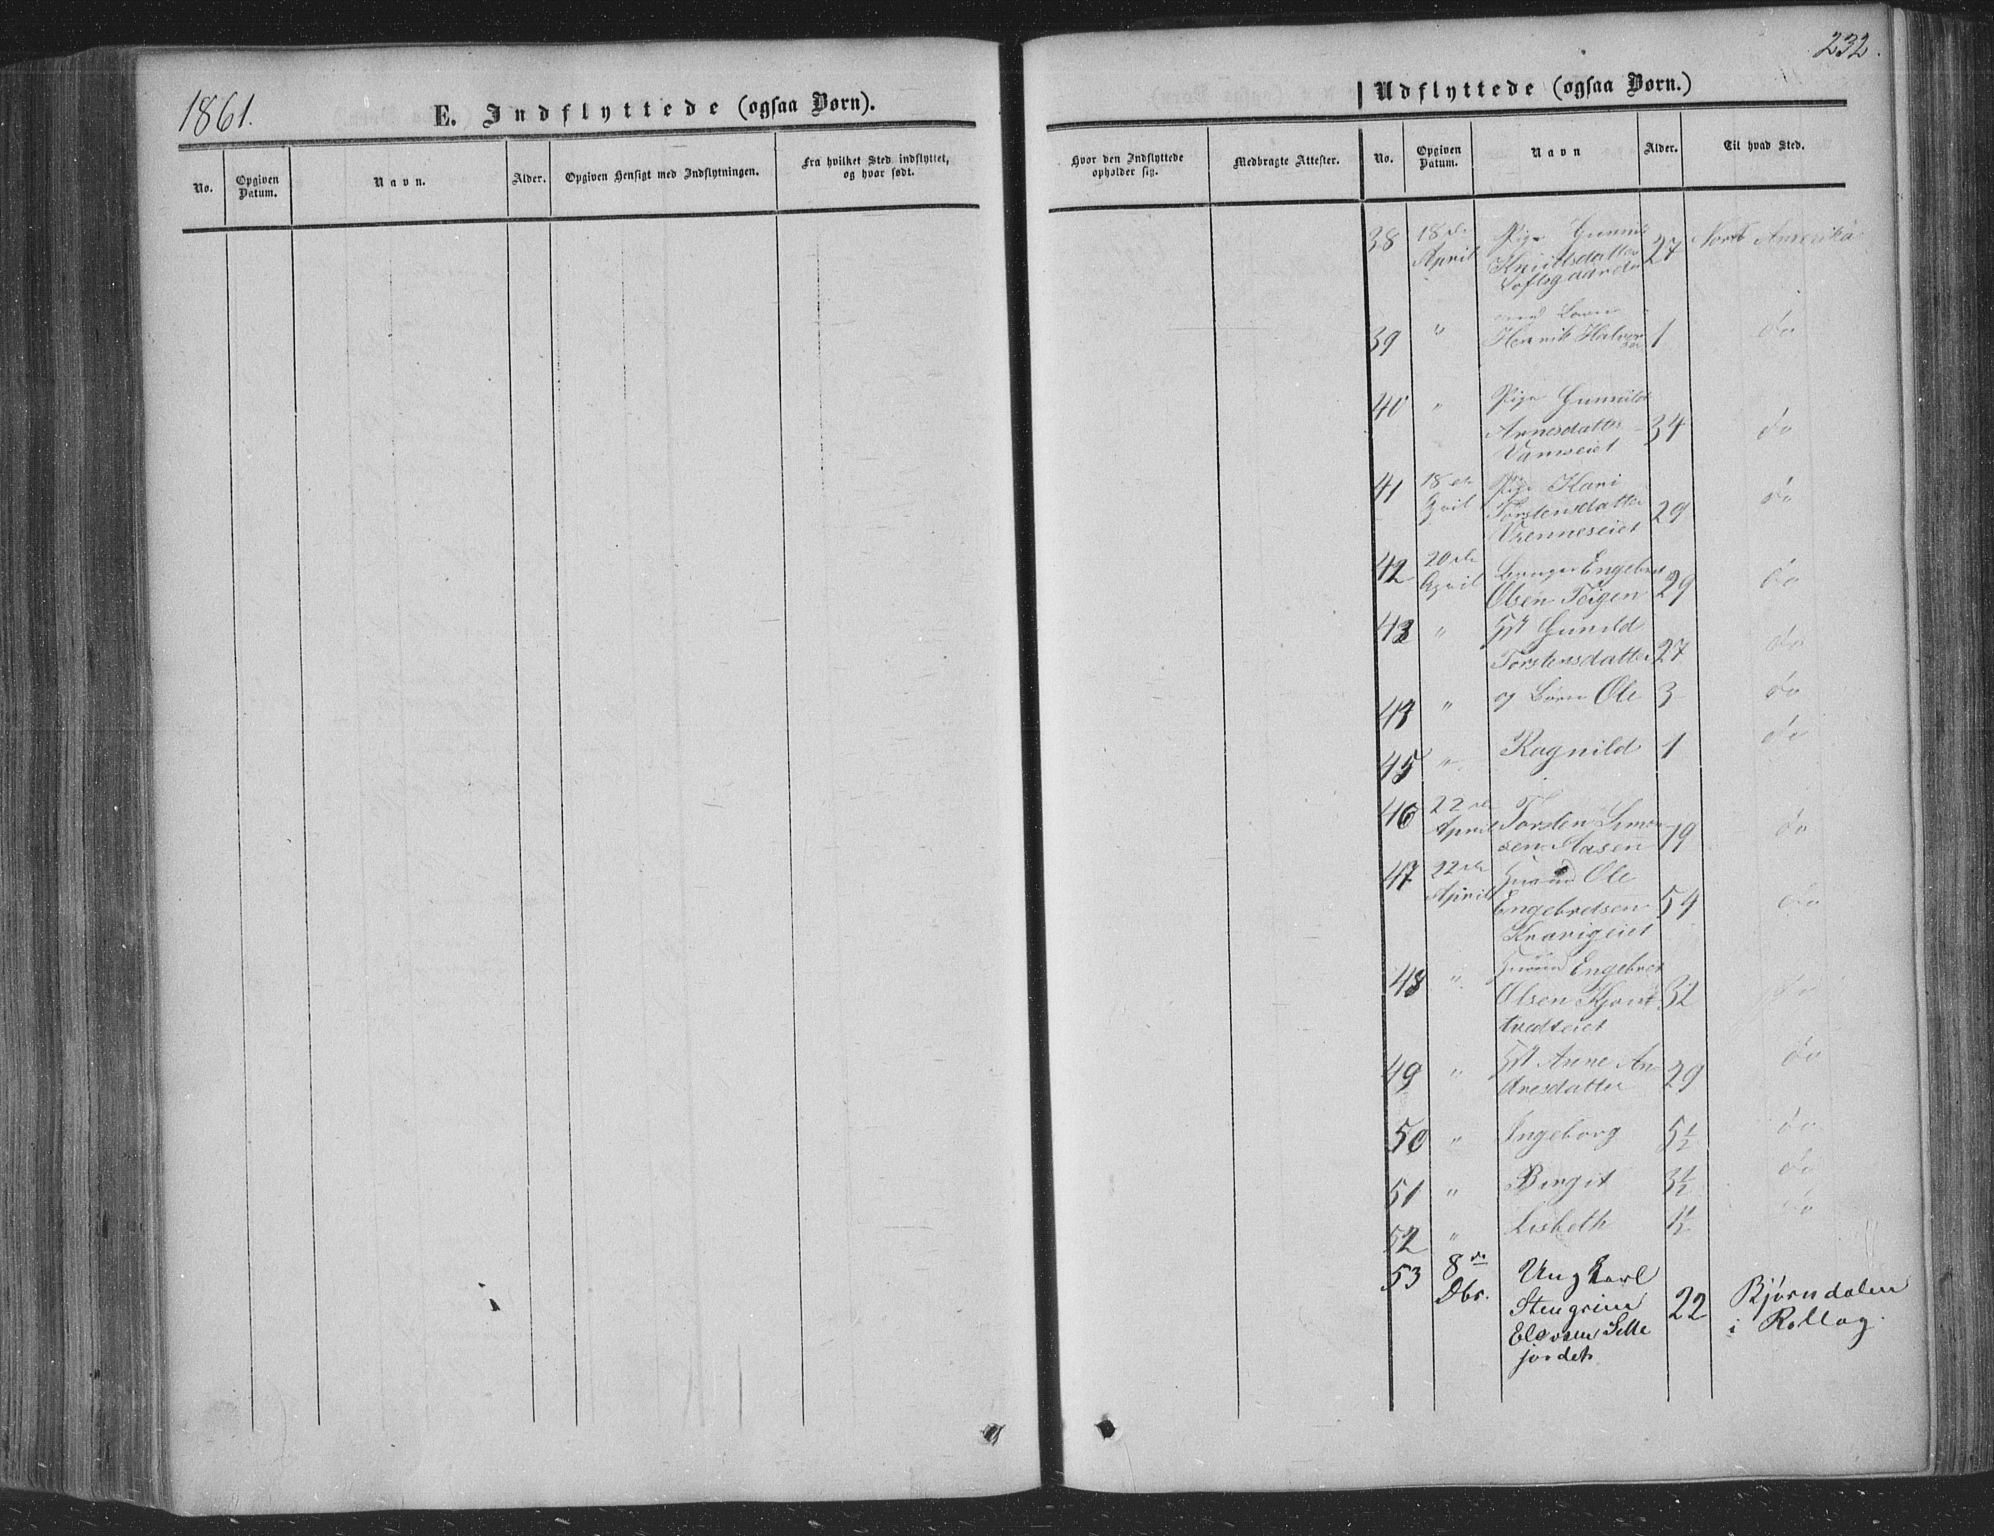 1861.
E. Indflyttede (ogsaa Børn).
No.
Opgiven
Datum.
Navn.
Alder.
Opgiven Hensigt med Indflytningen.
Fra hvilket Sted indflyttet,
og hvor født.
232.
Udflyttede (ogsaa Børn.)
Hvor den Indflyttede
opholder sig.
Medbragte Attester.
No.
Opgiven
Datum.
Navn
Alder.
Til hvad Sted.
38 18de Pige
April Knudsdatter 27 Nord Amerika
Loftsgaarden
39 " Henrik Halvor 1 do
sen
40 " Pige Gunild
Arnesdatter 34 do
41 18de Pige Kari
April Torstensdatter 29 do
Vrenneseiet
42 20de Engebret
April Olsen Teigen 29 do
43 " Gunild
Torstensdatter 27 do
44 " og Børn Ole 3 do
45 " Ragnild 1 do
46 22de Torsten Simon
April sen Aasen 19 do
47 22de Ole
April Engebretsen 54 do
Kravigeiet
48 " Engebret
Olsen 32 do
49 " Anne An
dresdatter 29 do
50 " Ingeborg 5½ do
51 " Birgit 3½ do
52 " Lisbeth ½ do
53 8de Ungkarl
Dbr. Stengrim 22 Bjørndalen
i Rollag.
jordet